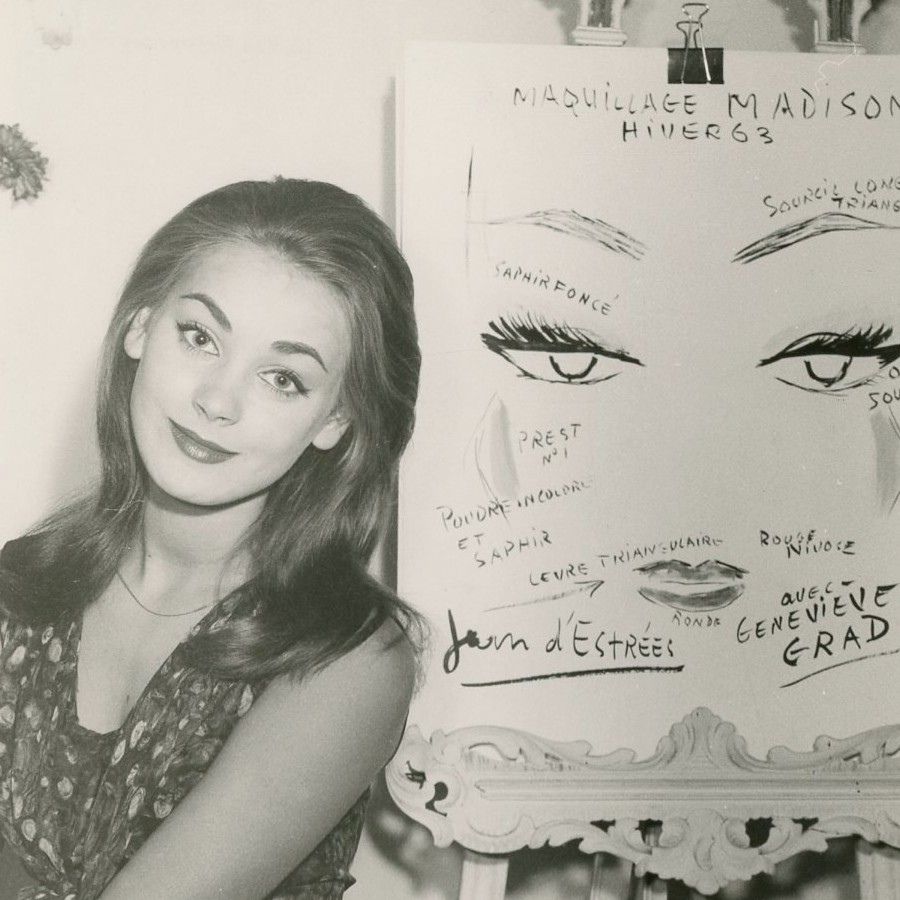 MAQUILLAGE MADISON
HIVER 63
SOURCIL LONG
TRIANG
SAPHIR FONCÉ
SOU
PREST
N°1
POUDRE INCOLORE
ET
SAPHIR
LEVRE TRIANGULAIRE
ROUGE
NIVOSE
RONDE
AVEC
GENEVIEVE
GRAD
Jean d'ESTRÉES
2